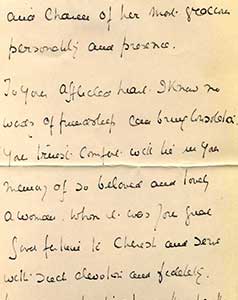 and charm of her most gracious
personality and presence.
To your afflicted heart I know no
words of friendship can bring consolation.
Your truest comfort will lie in your
memory of so beloved and lovely
a woman whom it was your great
good fortune to cherish and serve
with such devotion and fidelity.